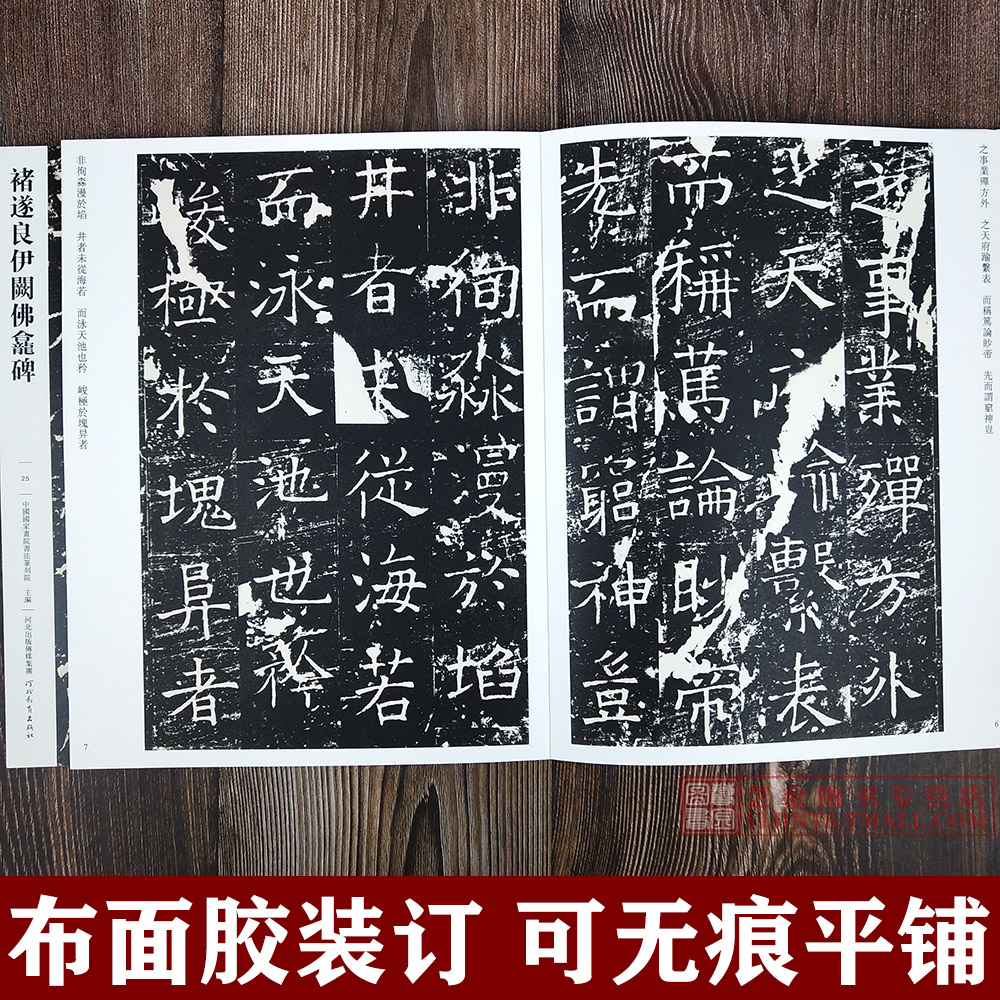 之事業殫方外
之天府踰繫表
而稱篤論眇帝
先而謂窮神豈
之事業殫方外　之天府踰繫表　而稱篤論眇帝　先而謂窮神豈
6
非徇淼漫於埳
井者未從海若
而泳天池也矜
峻極於塊阜者
非徇淼漫於埳　井者未從海若　而泳天池也矜　峻極於塊异者
7
褚遂良伊闕佛龕碑
25
中國國家畫院書法篆刻院　主編
河北出版傳媒集團　河北教育出版社
艺金图书专营店
YIJINTS.TMALL.COM
布面胶装订 可无痕平铺